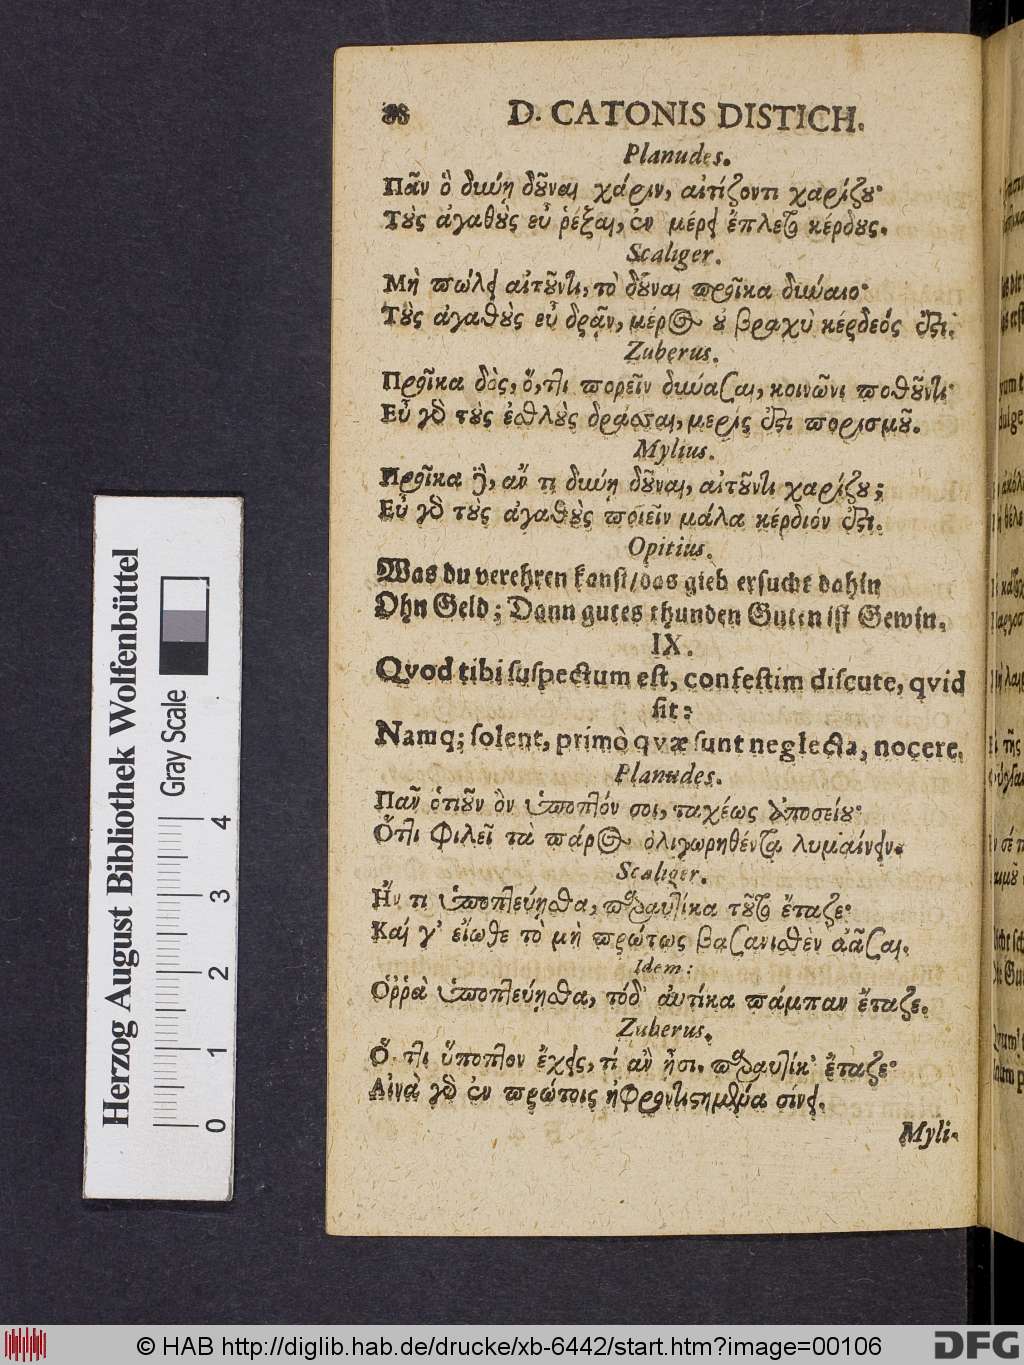 88 D. CATONIS DISTICH.
Planudes.
Πᾶν ὃ δικύη δοῦναι χάριν, αἰτίζοντι χαρίζου·
Τοὺς ἀγαθοὺς εὖ ῥέξαι, ἐν μέρει ἔπλετο κέρδους.
Scaliger.
Μὴ πώλει αἰτοῦντι, τὸ δοῦναι προῖκα δικύαιο·
Τοὺς ἀγαθοὺς εὖ δρᾷν, μέρος οὐ βραχὺ κέρδεός ἐστι.
Zuberus.
Προῖκα δὸς, ὅ,τι πορεῖν δικύασαι, κοινῶνι ποθοῦντι·
Εὖ γὰρ τοὺς ἐσθλοὺς δράσαι, μερίς ἐστι πορισμοῦ.
Mylius.
Προῖκα γε, ἄν τι δικύη δοῦναι, αἰτοῦντι χαρίζου;
Εὖ γὰρ τοὺς ἀγαθοὺς ποιεῖν μάλα κέρδιόν ἐστι.
Opitius.
Was du verehren kanst/das gieb ersucht dahin
Ohn Geld; Dann gutes thun den Guten ist Gewin.
IX.
Qvod tibi suspectum est, confestim discute, qvid
sit:
Namq; solent, primò qvæ sunt neglecta, nocere.
Planudes.
Πᾶν ὁτιοῦν ὂν ὑποπτόν σοι, ταχέως ἀποσείου·
Ὅτι φιλεῖ τὰ πάρος ὀλιγωρηθέντα λυμαίνειν.
Scaliger.
Ἤν τι ὑποπτεύησθα, παραυτίκα τοῦτο ἔταζε·
Καί γ' εἴωθε τὸ μὴ πρώτως βασανισθὲν ἀᾶσαι.
Idem:
Ὁῤῥὰ ὑποπτεύησθα, τόδ' αὐτίκα πάμπαν ἔταζε.
Zuberus.
Ὅ τι ὕποπτον ἔχεις, τί ἂν ᾖσι. παραυτίκ' ἔταζε·
Αἰνὰ γὰρ ἐν πρώτοις ἠφροντιστημένα σίνει.
Myli-
Herzog August Bibliothek Wolfenbüttel
Gray Scale
0 1 2 3 4
© HAB http://diglib.hab.de/drucke/xb-6442/start.htm?image=00106
DFG